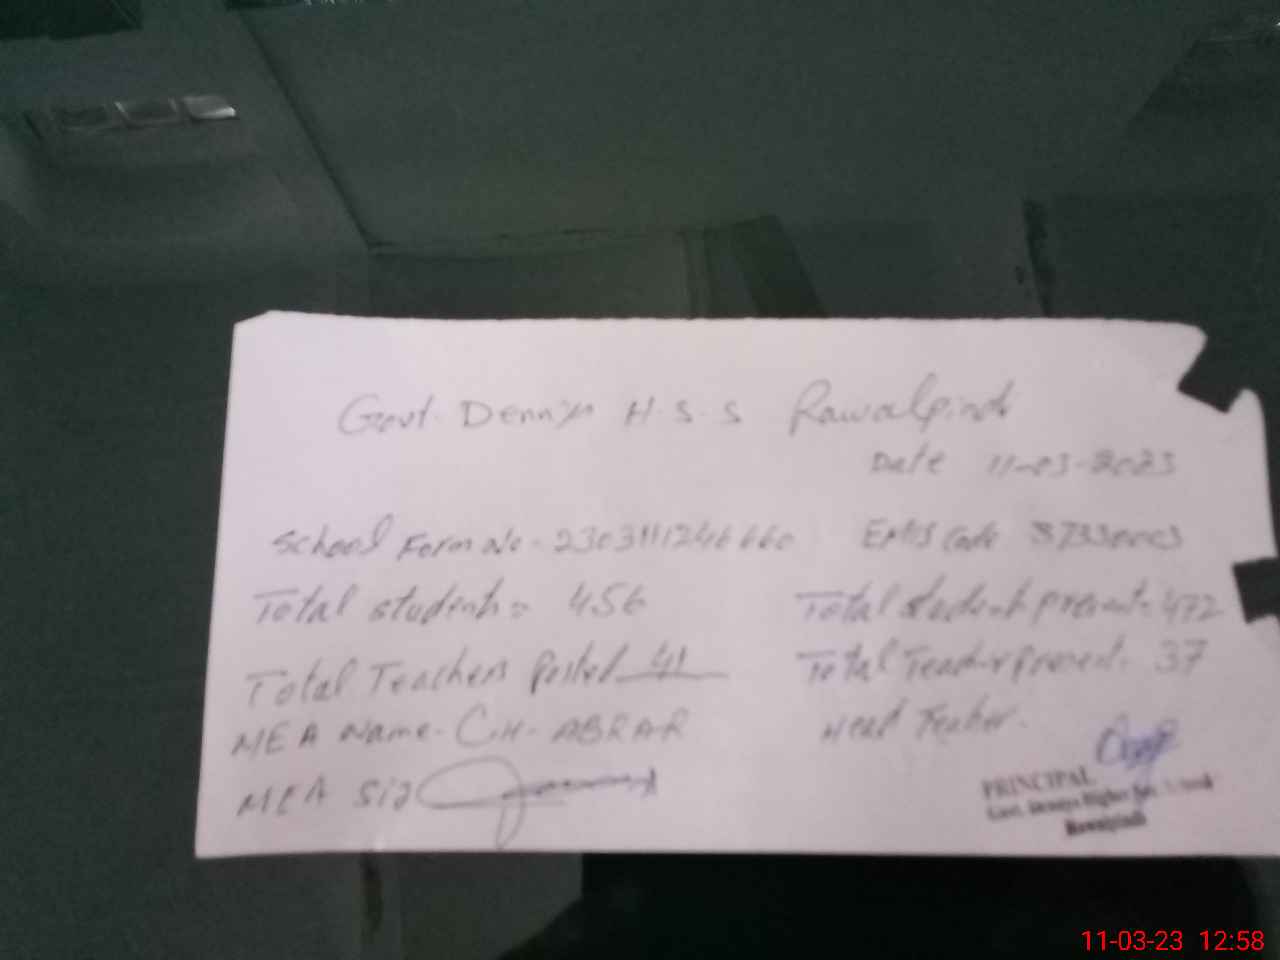 Govt. Denny's H.S.S Rawalpindi
Date 11-03-2023
School Form No- 230311124666 0 EMIS Code
Total students = 456 Total student present = 472
Total Teachers Posted 41 Total Teacher present - 37
MEA Name - CH - ABRAR Head Teacher.
MEA Sig
PRINCIPAL
Govt. Dennys Higher Sec. School
Rawalpindi
11-03-23 12:58